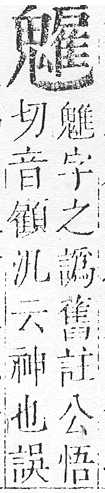 魋字之譌舊註公悟
切音顧汎云神也誤